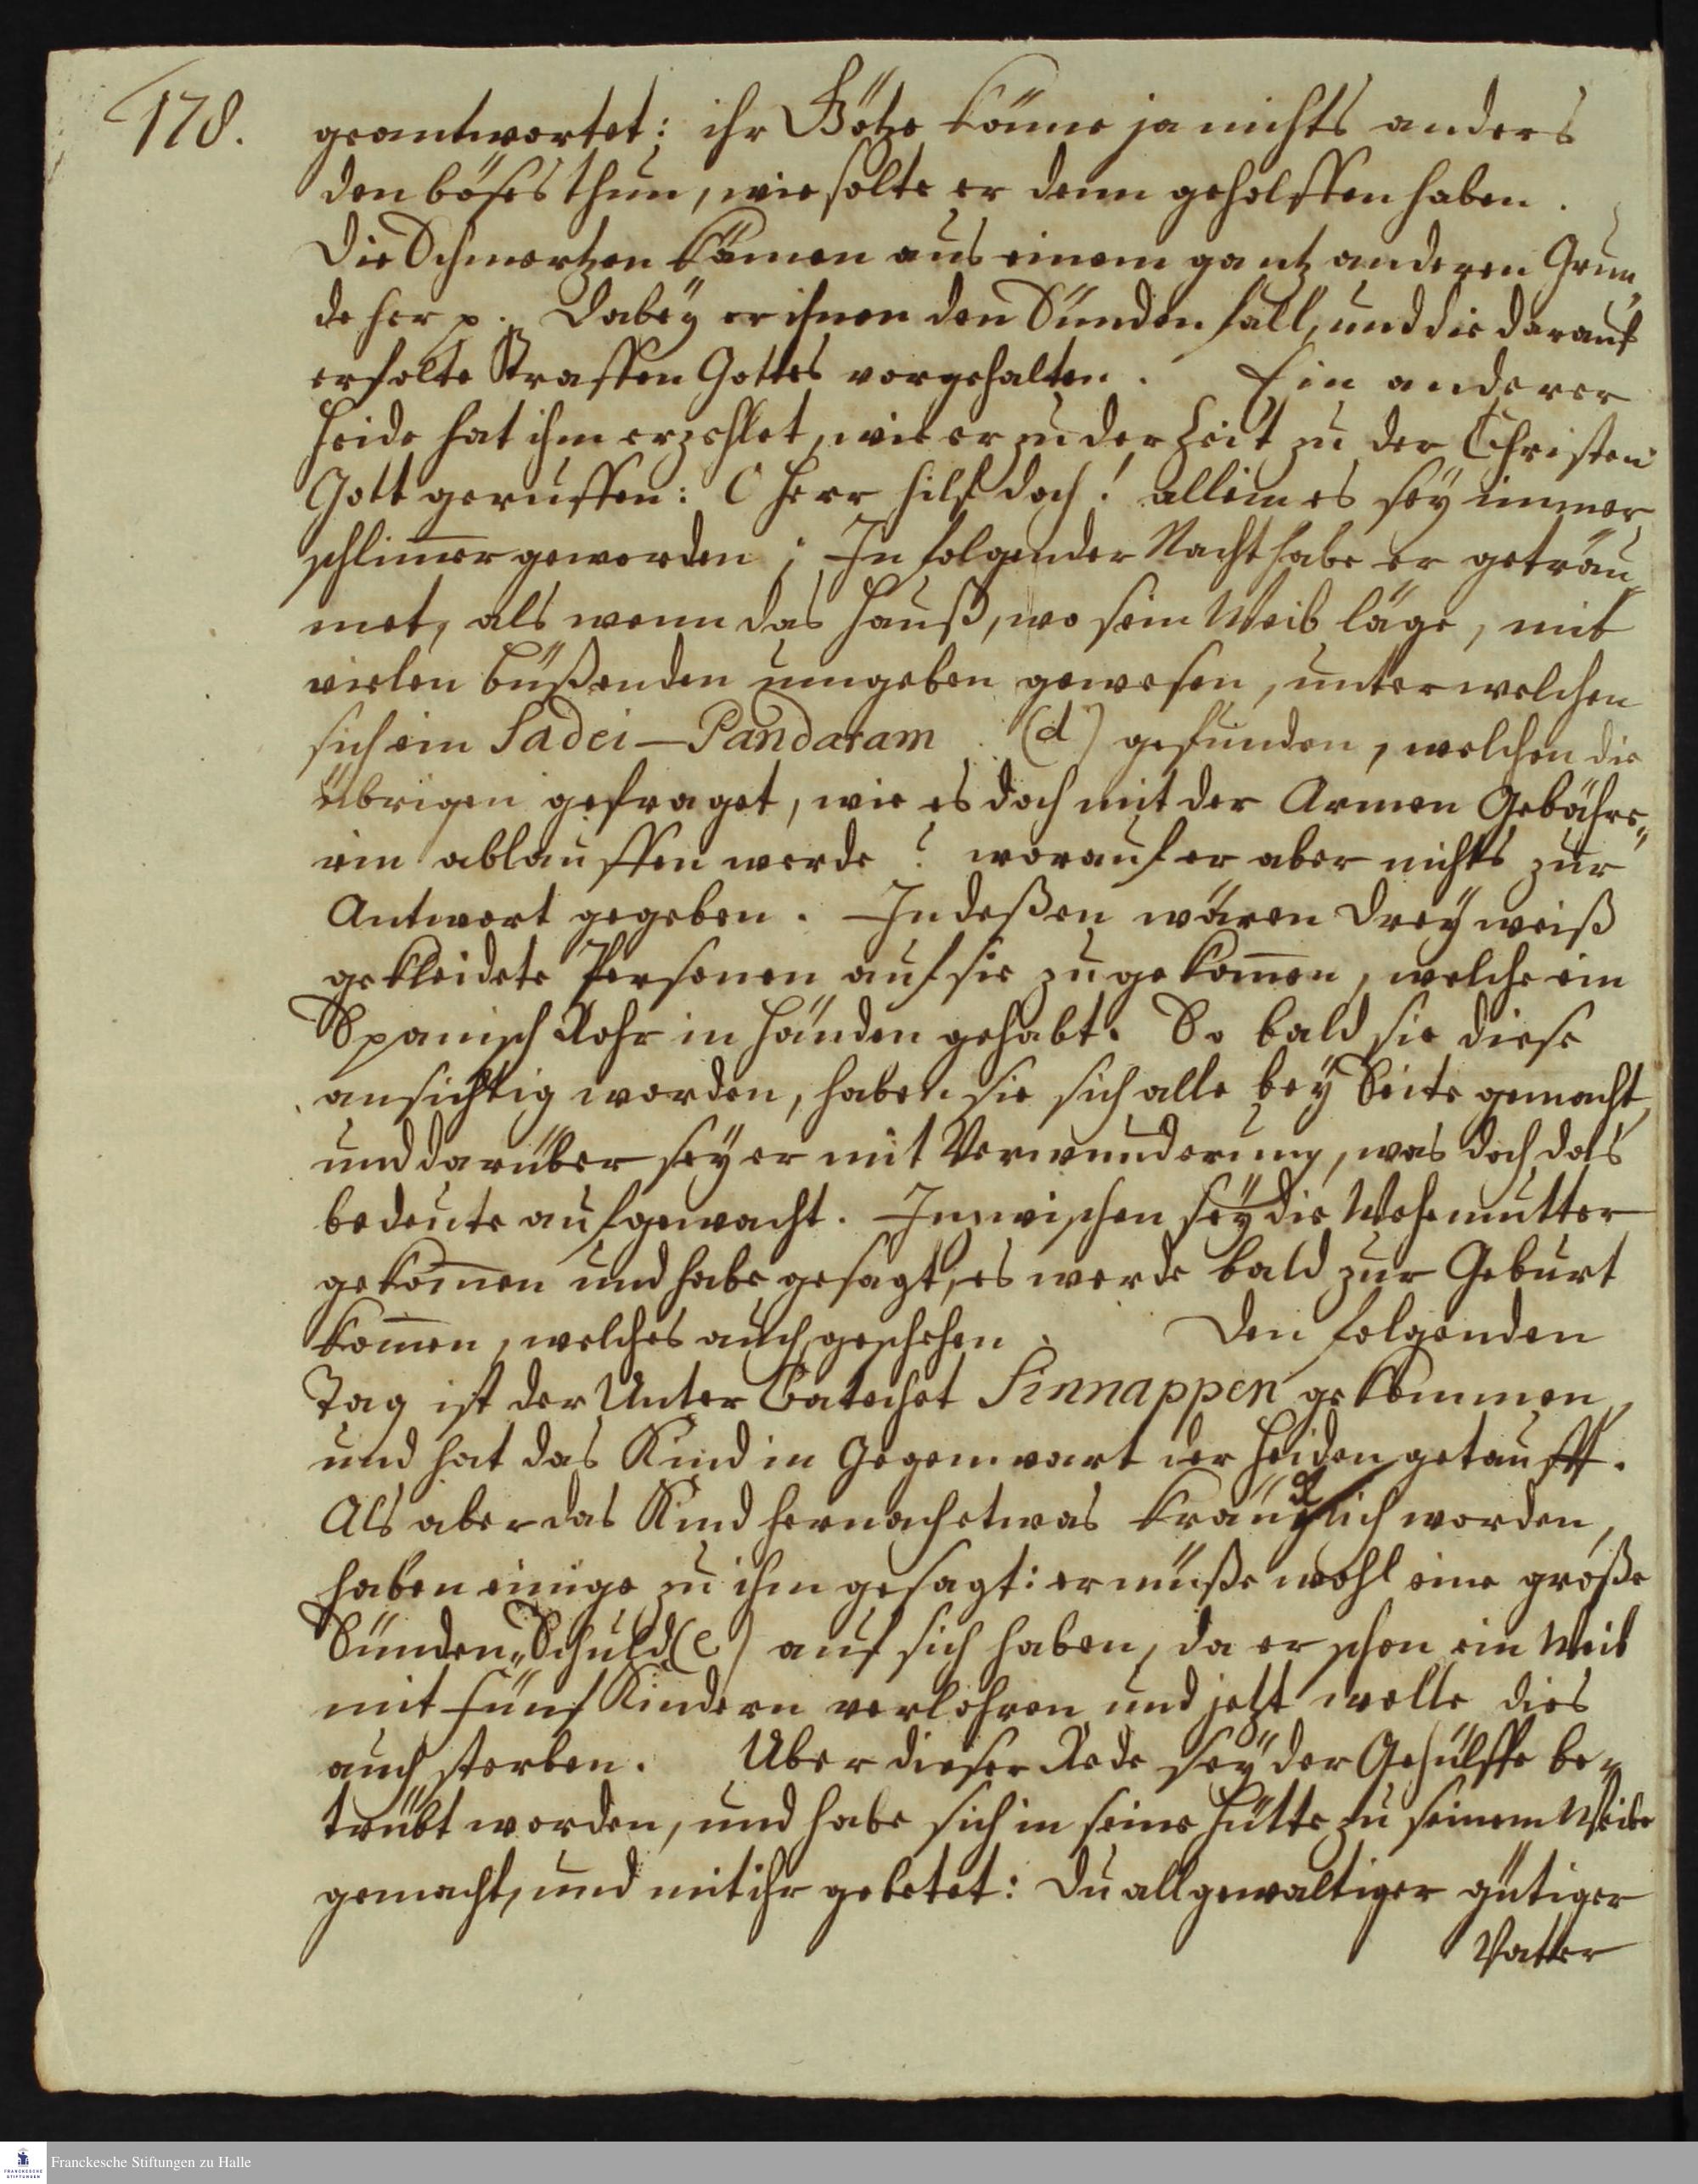 178.
geantwortet: ihr Götze könne ja nichts anders
den böses thun, wie solte er denn geholffen haben.
Die Schmertzen kämen aus einem gantz anderen Grun„
de her p. Dabeÿ er ihnen den Sünden fall, und die darauf
erfolte Straffen Gottes vorgehalten. Ein anderer
Heide hat ihm erzehlet, wie er zu der Zeit zu der Christen
Gott geruffen: O Herr hilf doch! allein es seÿ immer
schlim̅er geworden; In folgender Nacht habe er geträu„
met, als wenn das Hauß, wo sein Weib läge, mit
vielen büßenden umgeben gewesen, unter welchen
sich ein Sadei—Pandaram (d) gefunden, welchen die
übrigen gefraget, wie es doch mit der Armen Gebähre„
rin ablauffen werde? worauf er aber nichts zur
Antwort gegeben. Indeßen wären dreÿ weiß
gekleidete Personen auf sie zu gekom̅en, welche ein
Spanisch Rohr in Händen gehabt. So bald sie diese
ansichtig worden, haben sie sich alle beÿ Seite gemacht,
und darüber seÿ er mit Verwunderung, was doch das
bedeute aufgewacht. Inzwischen seÿ die Wehemutter
gekom̅en und habe gesagt, es werde bald zur Geburt
kom̅en, welches auch geschehen. Den folgenden
Tag ist der Unter Catechet Sinnappen gekommen,
und hat das Kind in Gegenwart der Heiden getaufft.
Als aber das Kind hernach etwas kräncklich worden,
haben einige zu ihm gesagt: er müße wohl eine große
Sünden„Schuld (e) auf sich haben, da er schon ein Weib
mit fünf Kindern verlohren und jetzt wolle dies
auch sterben. Uber dieser Rede seÿ der Gehülffe be„
trübt worden, und habe sich in seine Hütte zu seinem Weibe
gemacht, und mit ihr gebetet: Du allgewaltiger gütiger
Vatter
Franckesche Stiftungen zu Halle
FRANCKESCHE
STIFTUNGEN